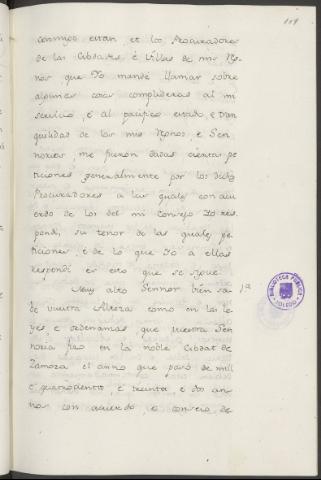 119
conmigo estan, et los Procuradores
de las Cibdades, é Villas de mis Reg-
nos que Yo mandé llamar sobre
algunas cosas complideras al mi
servicio, é al pacifico estado, é tran
quilidad de los mis Regnos, é Sen
norios, me fueron dadas ciertas pe
ticiones generalmente por los dichos
Procuradores a las quales con acu
erdo de los del mi Consejo Yo res
pondí, su tenor de las quales pe
ticiones, é de lo que Yo a ellas
respondí es esto que se sigue
Muy alto Sennor bien sa- 1ª
be vuestra Alteza como en las le
yes, e ordenanzas, que vuestra Sen
noria fizo en la noble Cibdat de
Zamora el anno que pasó de mil
é quatrocientos, é treinta, é dos an-
nos con acuerdo, e consejo de
BIBLIOTECA PUBLICA
TOLEDO